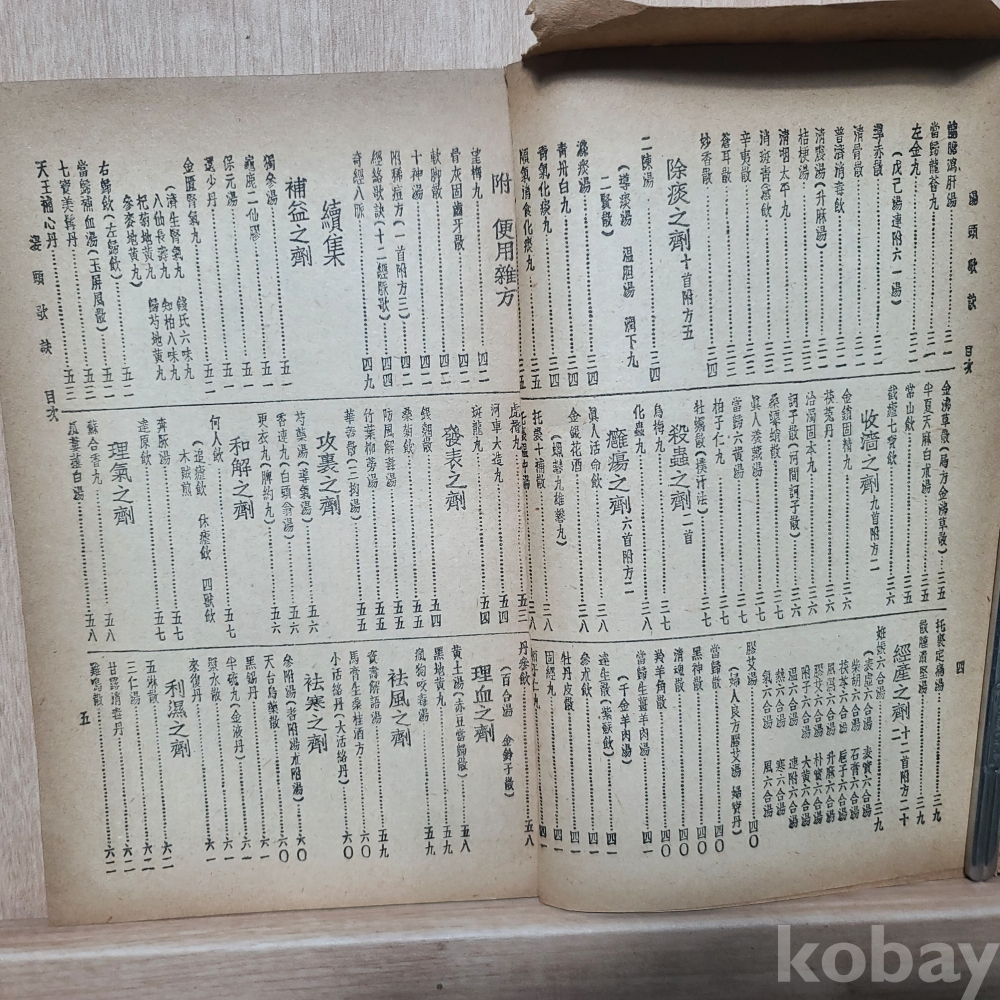 湯頭歌訣 目次
龍膽瀉肝湯……三一
當歸龍薈丸……三一
左金丸……三二
(戊己湯連附六一湯)
導赤散……三二
清骨散……三二
普濟消毒飲……三二
清震湯(升麻湯)……三三
桔梗湯……三三
清咽太平丸……三三
消斑青黛飲……三三
辛夷散……三三
蒼耳散……三三
妙香散……三四
除痰之劑 十首附方五
二陳湯……三四
(導痰湯 溫胆湯 潤下丸
二賢散)
滌痰湯……三四
青州白丸……三四
清氣化痰丸……三五
順氣消食化痰丸……三五
金沸草散(局方金沸草散)……三五
半夏天麻白朮湯……三五
常山飲……三五
截瘧七寶飲……三六
收濇之劑 九首附方二
金鎖固精丸……三六
茯菟丹……三六
治濁固本丸……三六
訶子散(河間訶子散)……三六
桑螵蛸散……三七
真人養臟湯……三七
當歸六黃湯……三七
柏子仁丸……三七
牡蠣散(撲汁法)……三七
殺蟲之劑 二首
烏梅丸……三七
化蟲丸……三八
癰瘍之劑 六首附方二
眞人活命飲……三八
金銀花酒……三八
(蠟礬丸雄礬丸)
托裏十補散……三八
托裏溫中湯……三八
托裏定痛湯……三九
散腫潰堅湯……三九
經產之劑 十二首附方二十二
妊娠六合湯……三九
(表虛六合湯 表實六合湯
柴胡六合湯 石膏六合湯
茯苓六合湯 梔子六合湯
風濕六合湯 升麻六合湯
膠艾六合湯 朴實六合湯
附子六合湯 大黃六合湯
溫六合湯 連附六合湯
熱六合湯 寒六合湯
氣六合湯 風六合湯)
膠艾湯……四〇
(婦人良方膠艾湯 婦寶丹)
當歸散……四〇
黑神散……四〇
清魂散……四〇
羚羊角散……四〇
當歸生薑羊肉湯……四一
(千金羊肉湯)
達生散(紫蘇飲)……四一
參朮飲……四一
牡丹皮散……四一
固經丸……四一
四
附 便用雜方
望梅丸……四二
骨灰固齒牙散……四二
軟脚散……四二
十神湯……四二
附稀痘方(一首附方三)……四二
經絡歌訣(十二經脈歌)……四四
奇經八脈……四九
續集
補益之劑
獨參湯……五一
龜鹿二仙膠……五一
保元湯……五一
還少丹……五二
金匱腎氣丸……五二
(濟生腎氣丸 錢氏六味丸
八仙長壽丸 知柏八味丸
杞菊地黃丸 歸芍地黃丸
參麥地黃丸)
右歸飲(左歸飲)……五二
當歸補血湯(玉屏風散)……五二
七寶美髯丹……五二
天王補心丹……五三
虎潛丸……五三
河車大造丸……五四
斑龍丸……五四
發表之劑
銀翹散……五四
桑菊飲……五五
防風解毒湯……五五
竹葉柳蒡湯……五五
華蓋散(三拗湯)……五五
攻裏之劑
芍藥湯(導氣湯)……五六
香連丸(白頭翁湯)……五六
更衣丸(脾約丸)……五六
和解之劑
何人飲……五七
(追瘧飲 休瘧飲 四獸飲
木賊煎)
奔豚湯……五七
達原飲……五七
理氣之劑
蘇合香丸……五八
瓜蔞薤白湯……五八
丹參飲……五八
(百合湯 金鈴子散)
理血之劑
黃土湯(赤豆當歸散)……五八
黑地黃丸……五九
瘋狗咬毒湯……五九
袪風之劑
資壽解語湯……五九
馬膏生桑桂酒方……六〇
小活絡丹(大活絡丹)……六〇
袪寒之劑
參附湯(耆附湯朮附湯)……六〇
天台烏藥散……六〇
黑錫丹……六一
半硫丸(金液丹)……六一
漿水散……六一
來復丹……六一
利濕之劑
五淋散……六一
三仁湯……六一
甘露消毒丹……六二
雞鳴散……六二
湯頭歌訣 目次
五
kobay